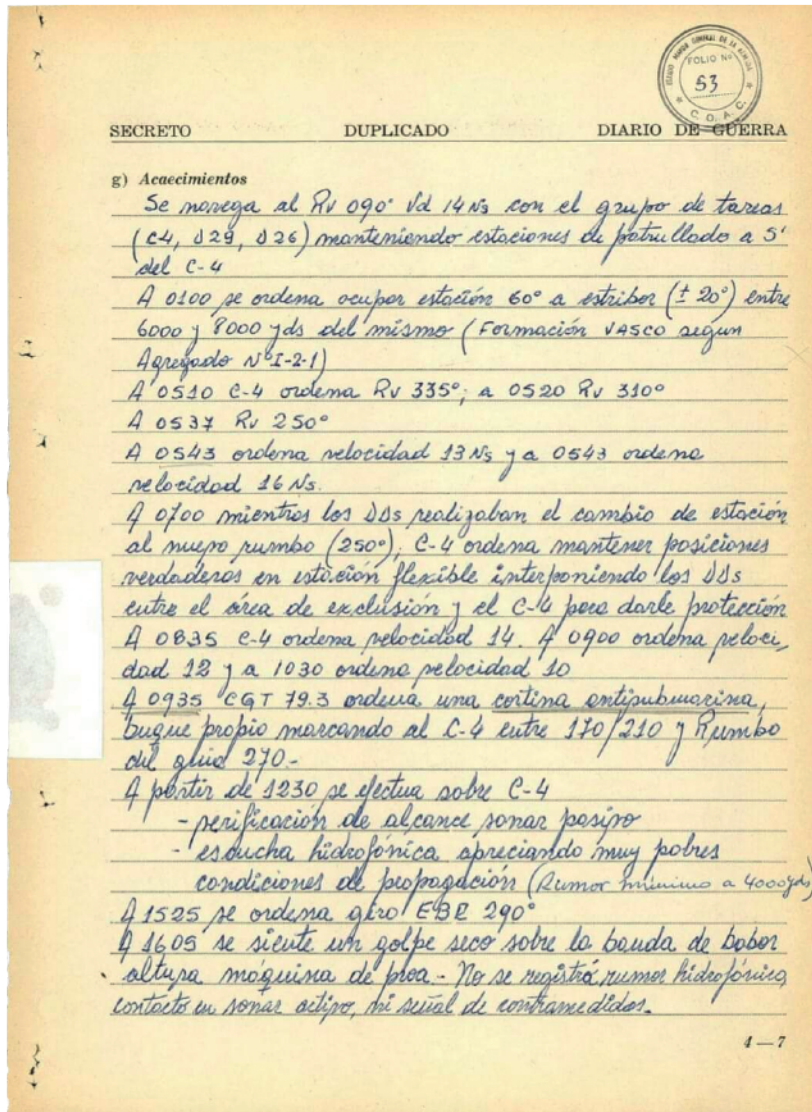 ESTADO MAYOR GENERAL DE LA ARMADA
FOLIO Nº
53
C. O. A. C.
SECRETO DUPLICADO DIARIO DE GUERRA
g) Acaecimientos
Se navega al Rv 090° Vd 14 Ns con el grupo de tareas
(C4, D29, D26) manteniendo estaciones de patrullado a 5'
del C-4
A 0100 se ordena ocupar estación 60° a estribor (± 20°) entre
6000 y 8000 yds del mismo (Formación VASCO según
Agregado Nº I-2-1)
A 0510 C-4 ordena Rv 335°; a 0520 Rv 310°
A 0537 Rv 250°
A 0543 ordena velocidad 13 Ns y a 0543 ordena
velocidad 16 Ns.
A 0700 mientras los DDs realizaban el cambio de estación
al nuevo rumbo (250°), C-4 ordena mantener posiciones
verdaderas en estación flexible interponiendo los DDs
entre el área de exclusión y el C-4 para darle protección
A 0835 C-4 ordena velocidad 14. A 0900 ordena veloci-
dad 12 y a 1030 ordena velocidad 10
A 0935 CGT 79.3 ordena una cortina antisubmarina,
buque propio marcando al C-4 entre 170/210 y Rumbo
del guia 270.-
A partir de 1230 se efectua sobre C-4
- verificación de alcance sonar pasivo
- escucha hidrofónica apreciando muy pobres
condiciones de propagación (Rumor mínimo a 4000 yds)
A 1525 se ordena giro EBR 290°
A 1605 se siente un golpe seco sobre la banda de babor
altura máquina de proa.- No se registró rumor hidrofónico,
contacto en sonar activo, ni señal de contramedidas.
4—7